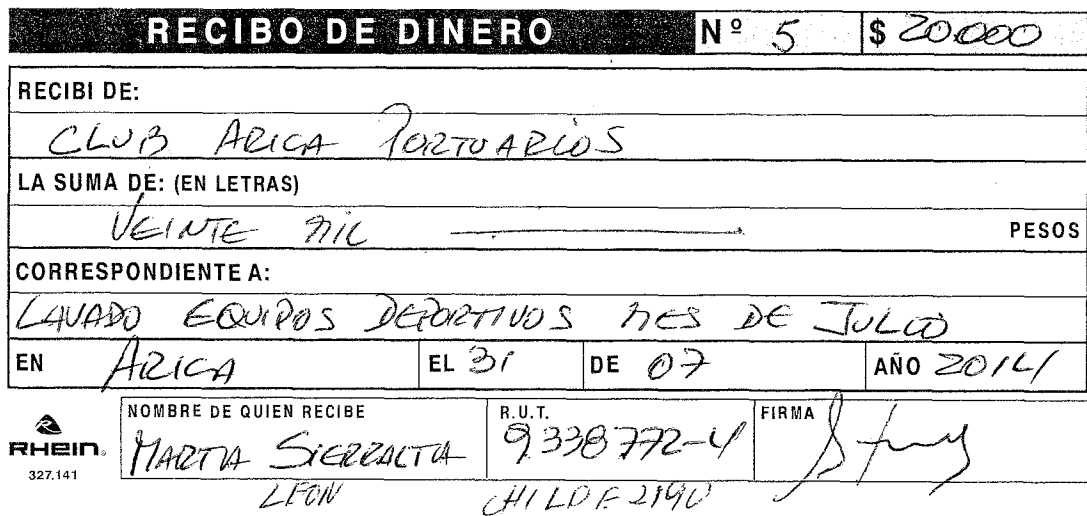 RECIBO DE DINERO Nº 5 $ 20.000
RECIBI DE:
CLUB ARICA PORTUARIOS
LA SUMA DE: (EN LETRAS)
VEINTE MIL PESOS
CORRESPONDIENTE A:
LAVADO EQUIPOS DEPORTIVOS MES DE JULIO
EN ARICA EL 31 DE 07 AÑO 2014
NOMBRE DE QUIEN RECIBE R.U.T. FIRMA
RHEIN. MARTA SIERRALTA 9.338772-4
327.141
LEON